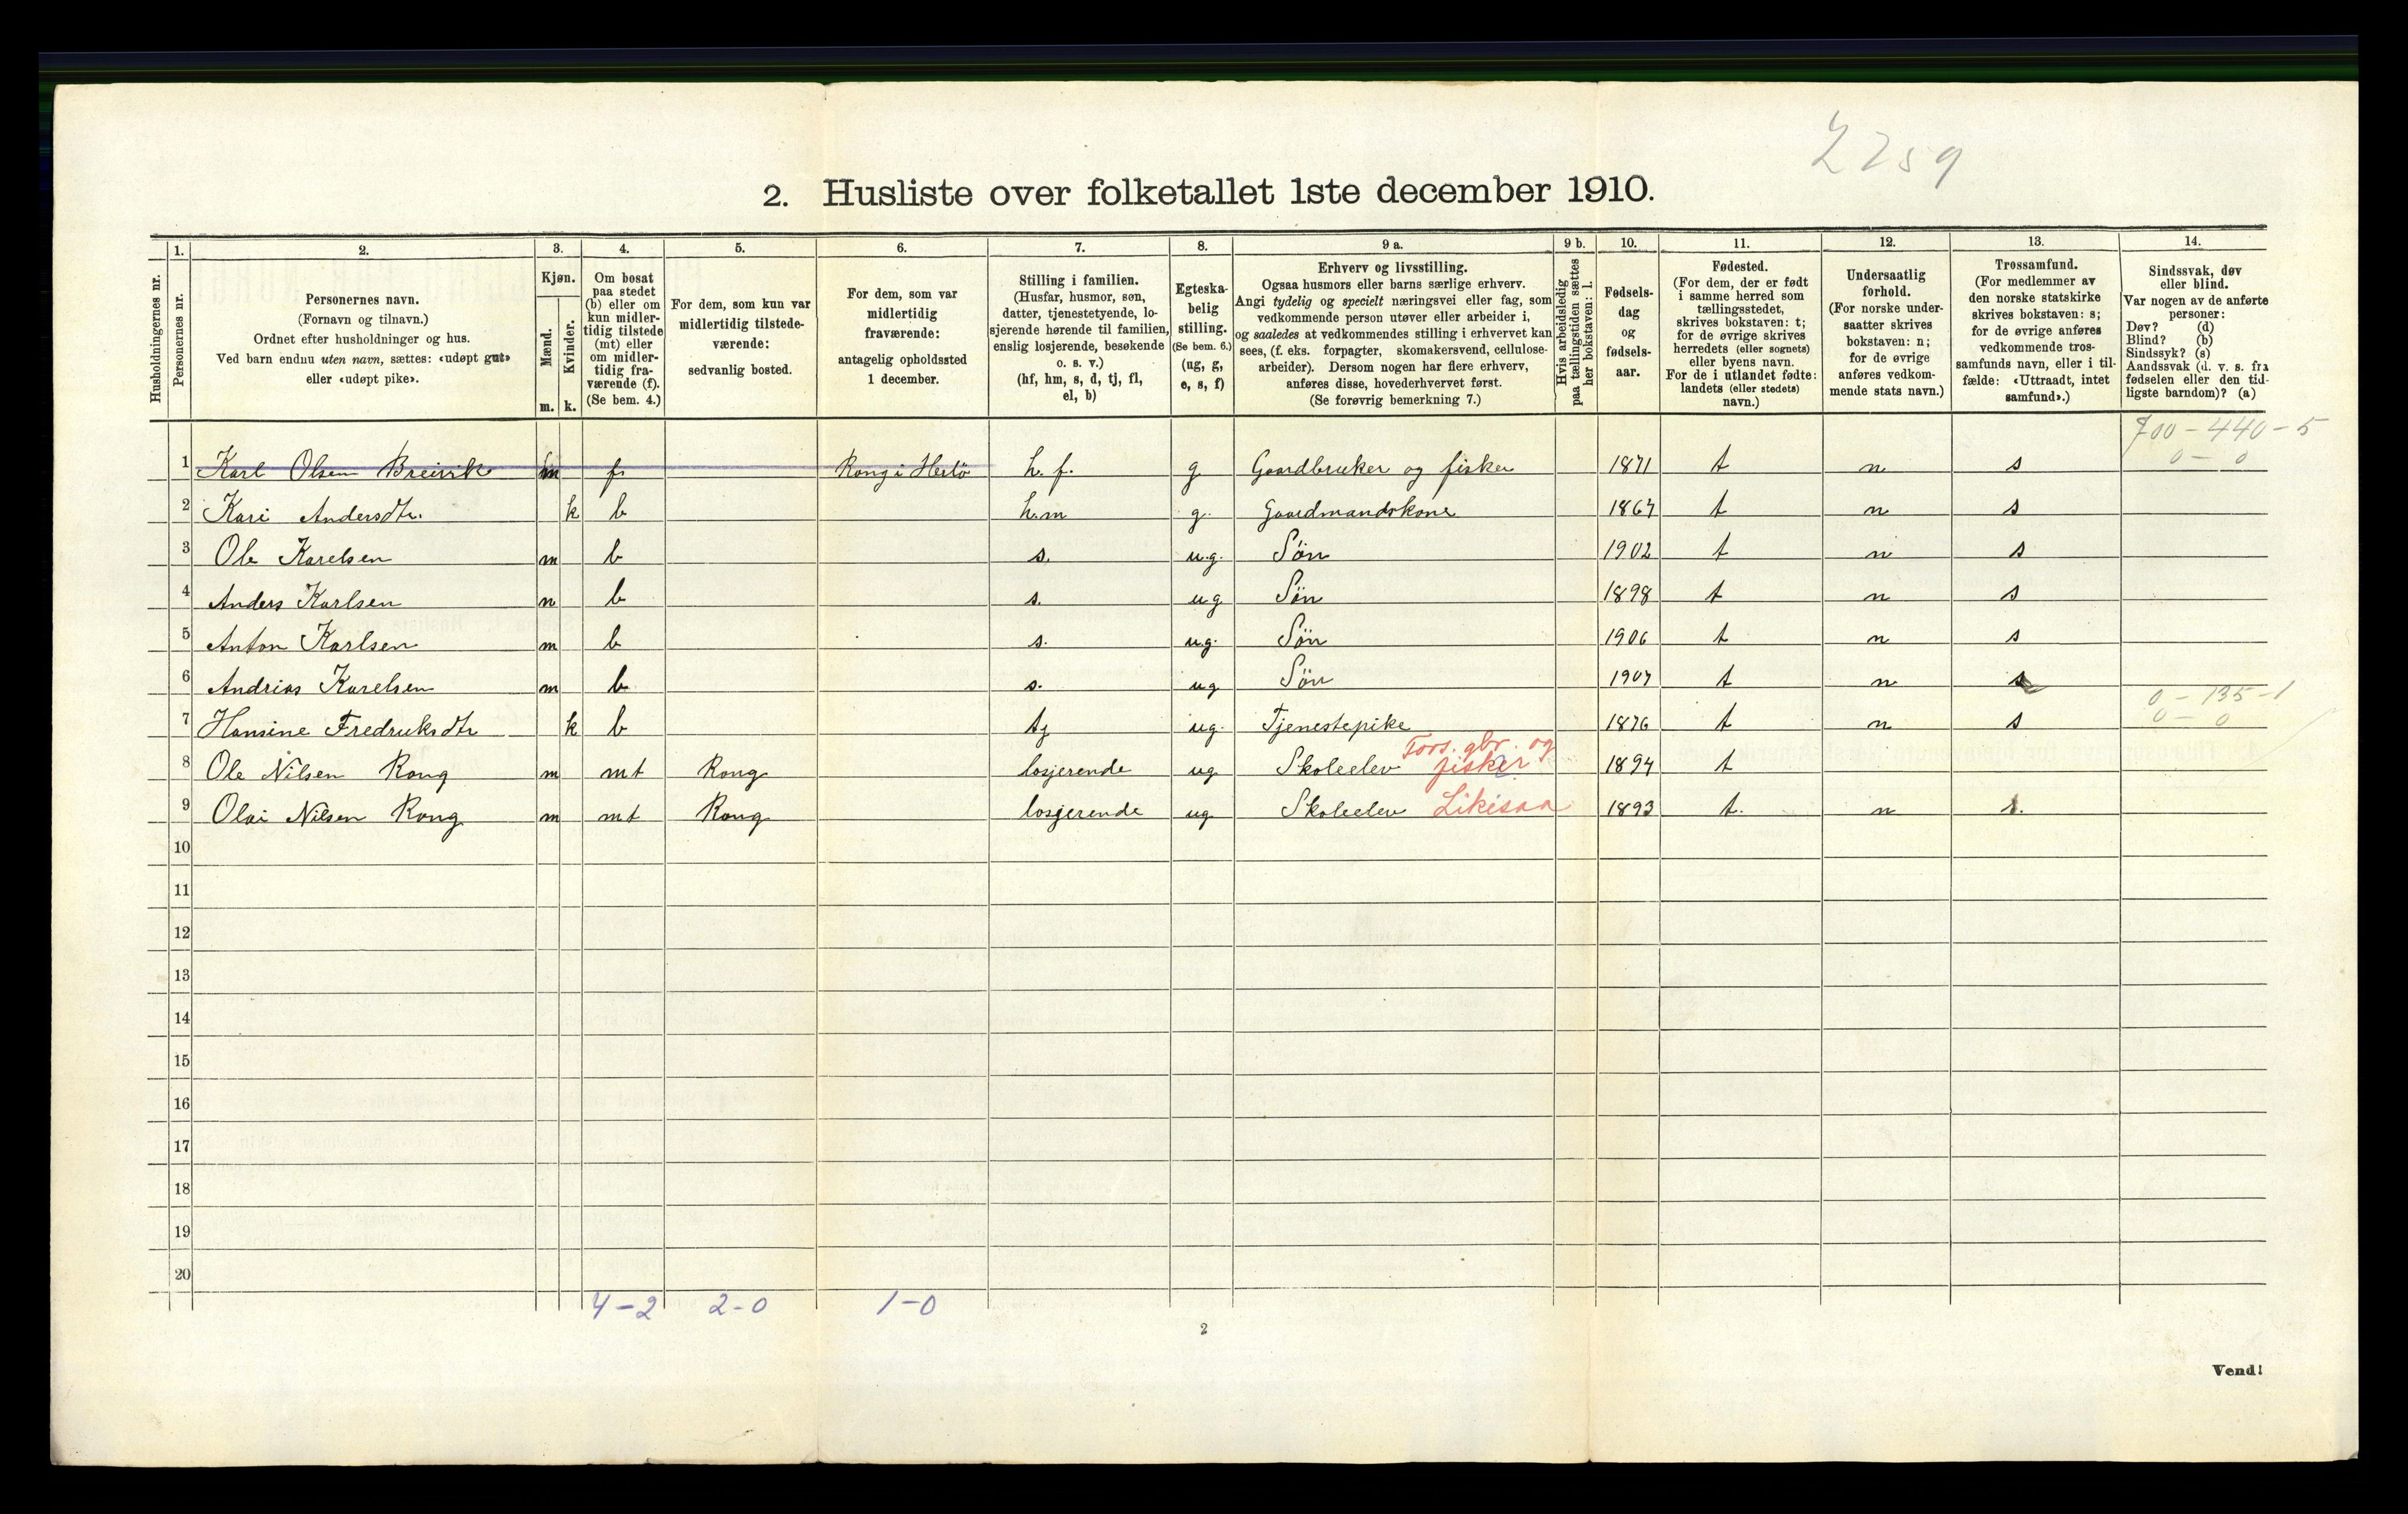 2259
2. Husliste over folketallet 1ste december 1910.
Husholdningernes nr.
1. Personernes nr.
2. Personernes navn. (Fornavn og tilnavn.) Ordnet efter husholdninger og hus. Ved barn endnu uten navn, sættes: «udøpt gut» eller «udøpt pike».
3. Kjøn. Mænd. m. Kvinder. k.
4. Om bosat paa stedet (b) eller om kun midlertidig tilstede (mt) eller om midlertidig fraværende (f). (Se bem. 4.)
5. For dem, som kun var midlertidig tilstedeværende: sedvanlig bosted.
6. For dem, som var midlertidig fraværende: antagelig opholdssted 1 december.
7. Stilling i familien. (Husfar, husmor, søn, datter, tjenestetyende, losjerende hørende til familien, enslig losjerende, besøkende o. s. v.) (hf, hm, s, d, tj, fl, el, b)
8. Egteskabelig stilling. (Se bem. 6.) (ug, g, e, s, f)
9 a. Erhverv og livsstilling. Ogsaa husmors eller barns særlige erhverv. Angi tydelig og specielt næringsvei eller fag, som vedkommende person utøver eller arbeider i, og saaledes at vedkommendes stilling i erhvervet kan sees, (f. eks. forpagter, skomakersvend, cellulosearbeider). Dersom nogen har flere erhverv, anføres disse, hovederhvervet først. (Se forøvrig bemerkning 7.)
9 b. Hvis arbeidsledig paa tællingstiden sættes her bokstaven: l.
10. Fødselsdag og fødselsaar.
11. Fødested. (For dem, der er født i samme herred som tællingsstedet, skrives bokstaven: t; for de øvrige skrives herredets (eller sognets) eller byens navn. For de i utlandet fødte: landets (eller stedets) navn.)
12. Undersaatlig forhold. (For norske undersaatter skrives bokstaven: n; for de øvrige anføres vedkommende stats navn.)
13. Trossamfund. (For medlemmer av den norske statskirke skrives bokstaven: s; for de øvrige anføres vedkommende trossamfunds navn, eller i tilfælde: «Uttraadt, intet samfund».)
14. Sindssvak, døv eller blind. Var nogen av de anførte personer: Døv? (d) Blind? (b) Sindssyk? (s) Aandssvak (d. v. s. fra fødselen eller den tidligste barndom)? (a)
700 - 440 - 5
0 - 0
1 Karl Olsen Breivik m f Rong i Herlö h.f. g Gaardbruker og fisker 1871 t n s
2 Kari Andersdtr. k b h.m g. Gaardmandskone 1867 t n s
3 Ole Karelsen m b s. u.g. Søn 1902 t n s
4 Anders Karlsen m b s. ug Søn 1898 t n s
5 Anton Karlsen m b s. ug. Søn 1906 t n s
6 Andrias Karelsen m b s. ug Søn 1907 t n s
0 - 135 - 1
0 - 0
7 Hansine Fredruksdtr k b tj ug. Tjenestepike 1876 t n s
8 Ole Nilsen Rong m mt Rong losjerende ug Skoleelev Fors. gbr. og fisker 1894 t
9 Olai Nilsen Rong m mt Rong losjerende ug Skoleelev Likesaa 1893 t. n s.
10
11
12
13
14
15
16
17
18
19
20
4-2 2-0 1-0
2
Vend!